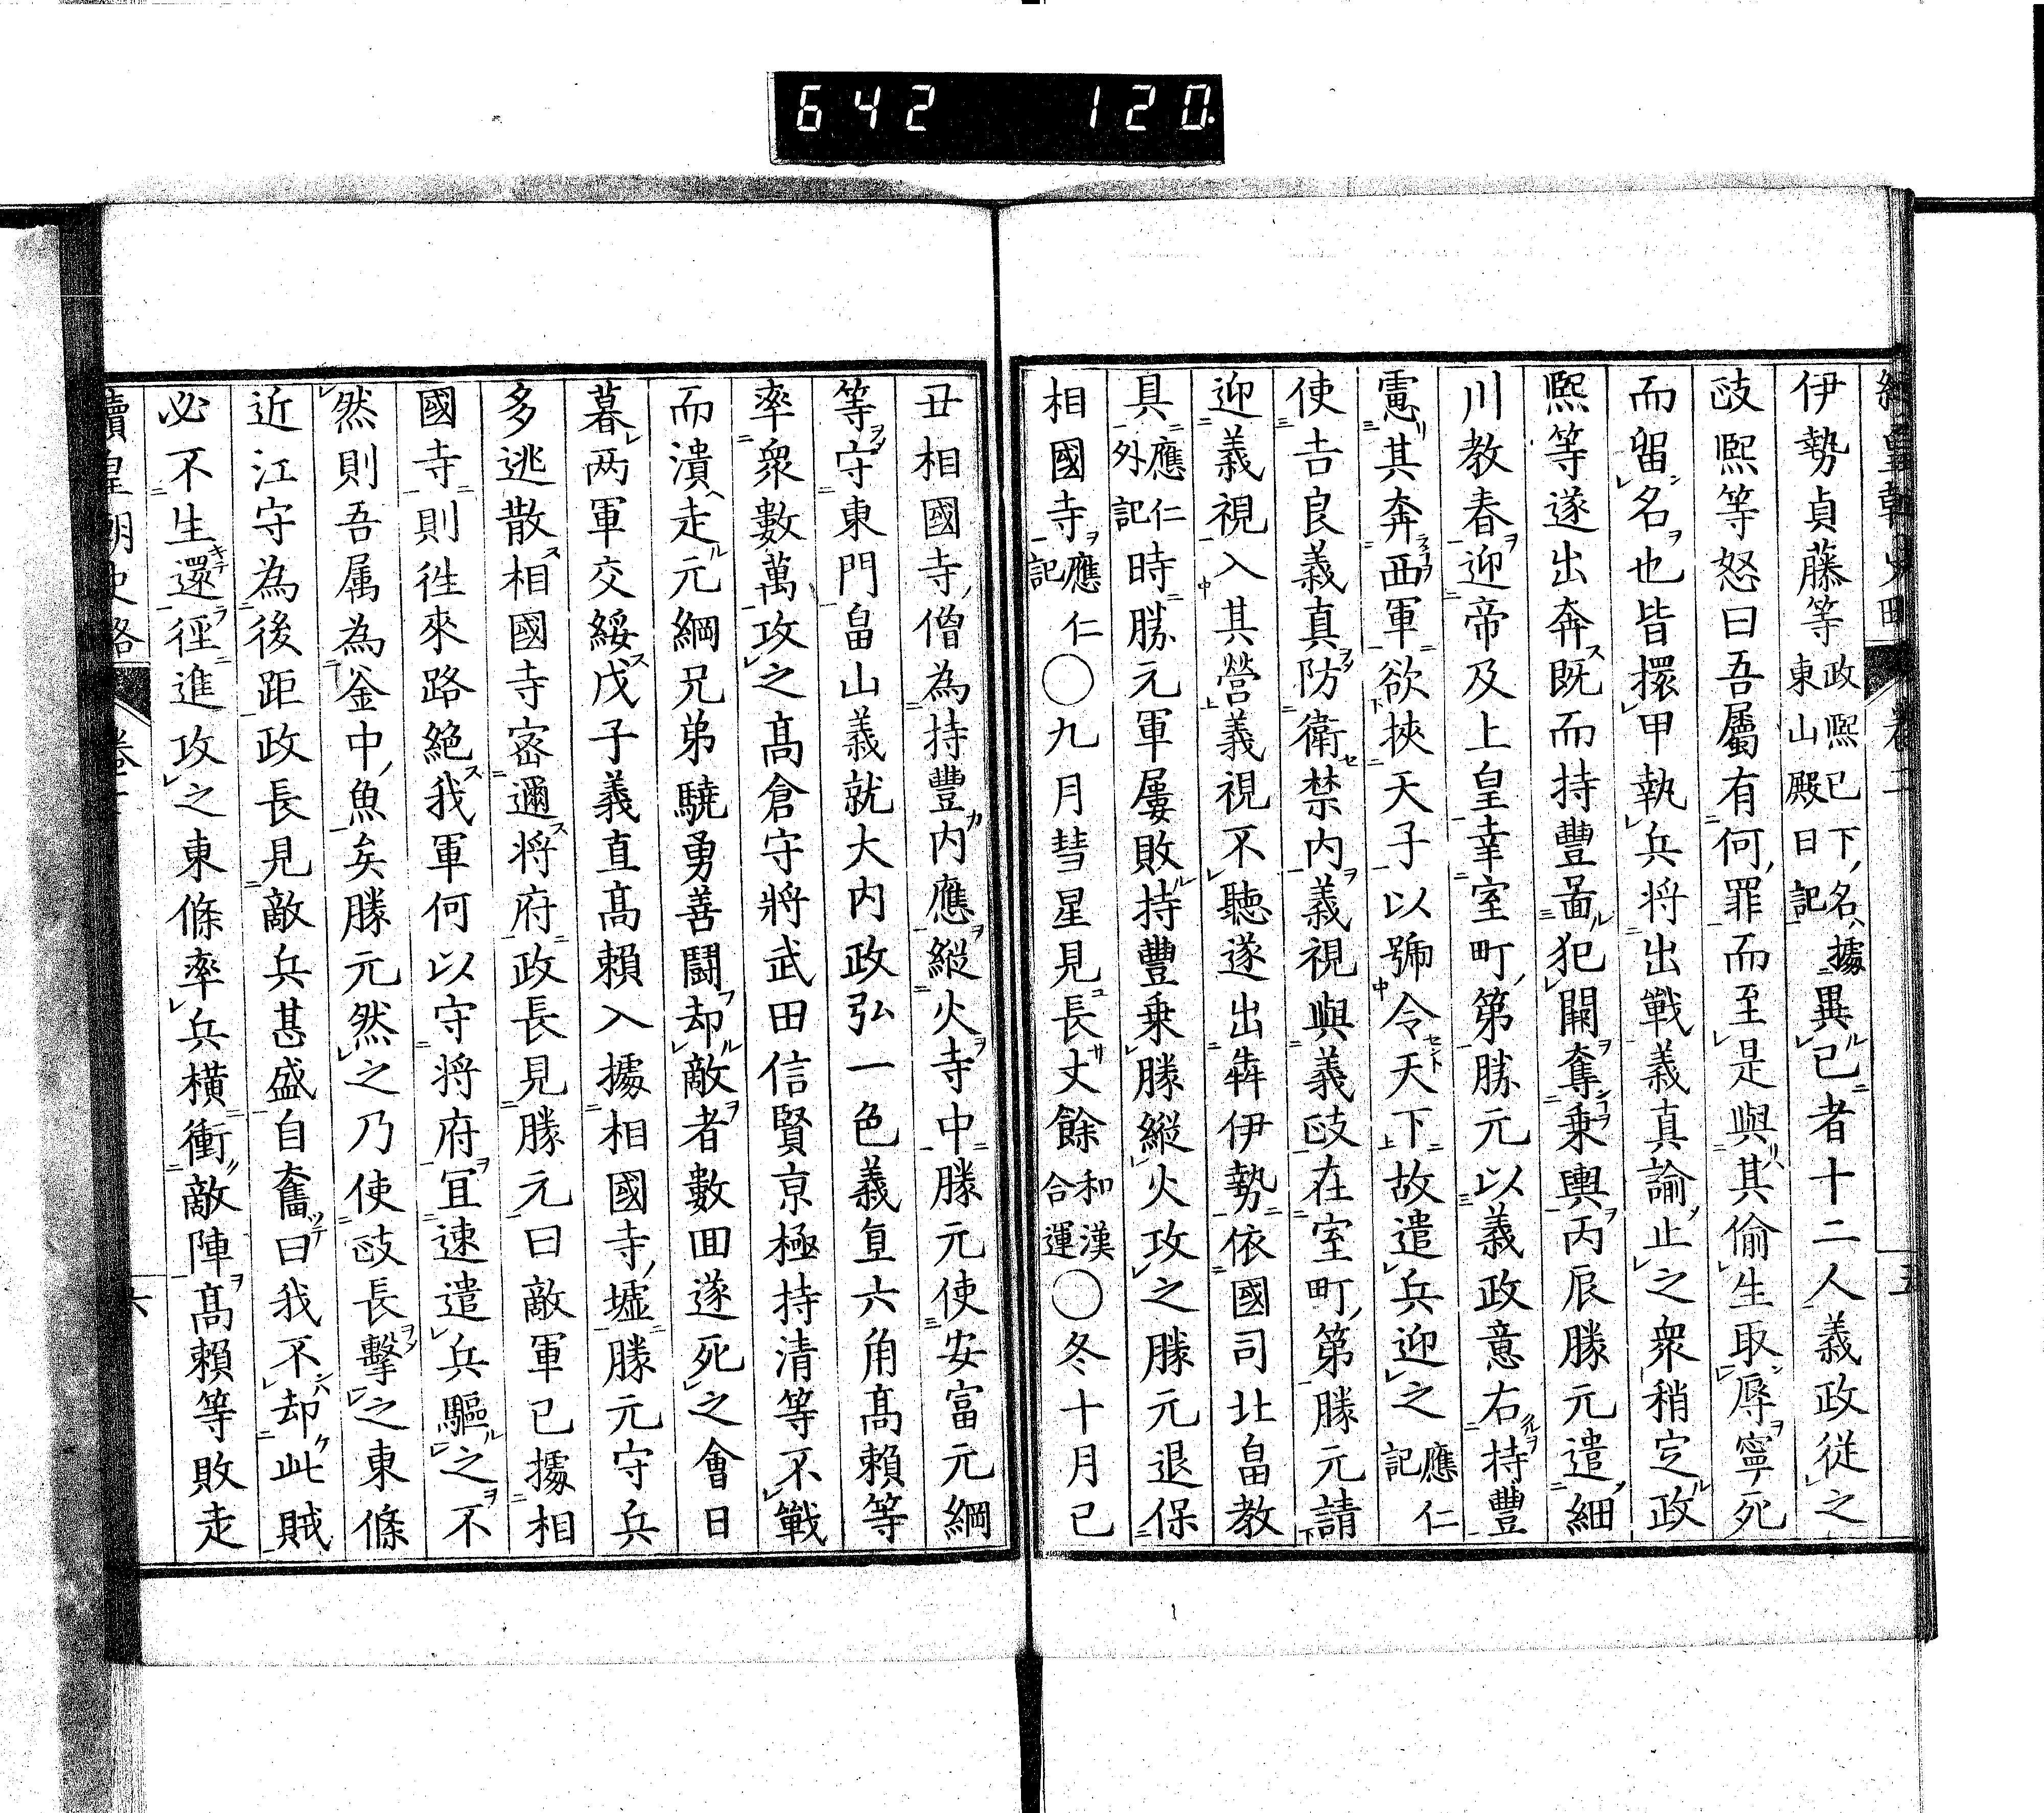 642 120
伊勢貞藤等政熙已下名據東山殿日記異已者十二人義政從之
政熙等怒曰吾屬有何罪而至是與其偷生取辱寧死
而留名也皆擐甲執兵将出戰義真諭止之衆稍定政
熙等遂出奔既而持豐啚犯闕奪乘輿丙辰勝元遣細
川教春迎帝及上皇幸室町第勝元以義政意右持豐
慮其奔西軍欲挾天子以號令天下故遣兵迎之應仁記
使吉良義真防衛禁内義視與義政在室町第勝元請
迎義視入其營義視不聽遂出犇伊勢依國司北畠教
具應仁外記時勝元軍屢敗持豐乗勝縱火攻之勝元退保
相國寺應仁記〇九月彗星見長丈餘和漢合運〇冬十月己
丑相國寺僧為持豐内應縱火寺中勝元使安富元綱
等守東門畠山義就大内政弘一色義直六角髙賴等
率衆數萬攻之髙倉守將武田信賢京極持清等不戰
而潰走元綱兄弟驍勇善鬪却敵者數回遂死之會日
暮两軍交綏戊子義直髙賴入據相國寺墟勝元守兵
多逃散相國寺密邇将府政長見勝元曰敵軍已據相
國寺則徃來路絶我軍何以守将府宜速遣兵驅之不
然則吾属為釜中魚矣勝元然之乃使政長擊之東條
近江守為後距政長見敵兵甚盛自奮曰我不却此賊
必不生還徑進攻之東條率兵横衝敵陣髙賴等敗走
續皇朝史略 卷二 六